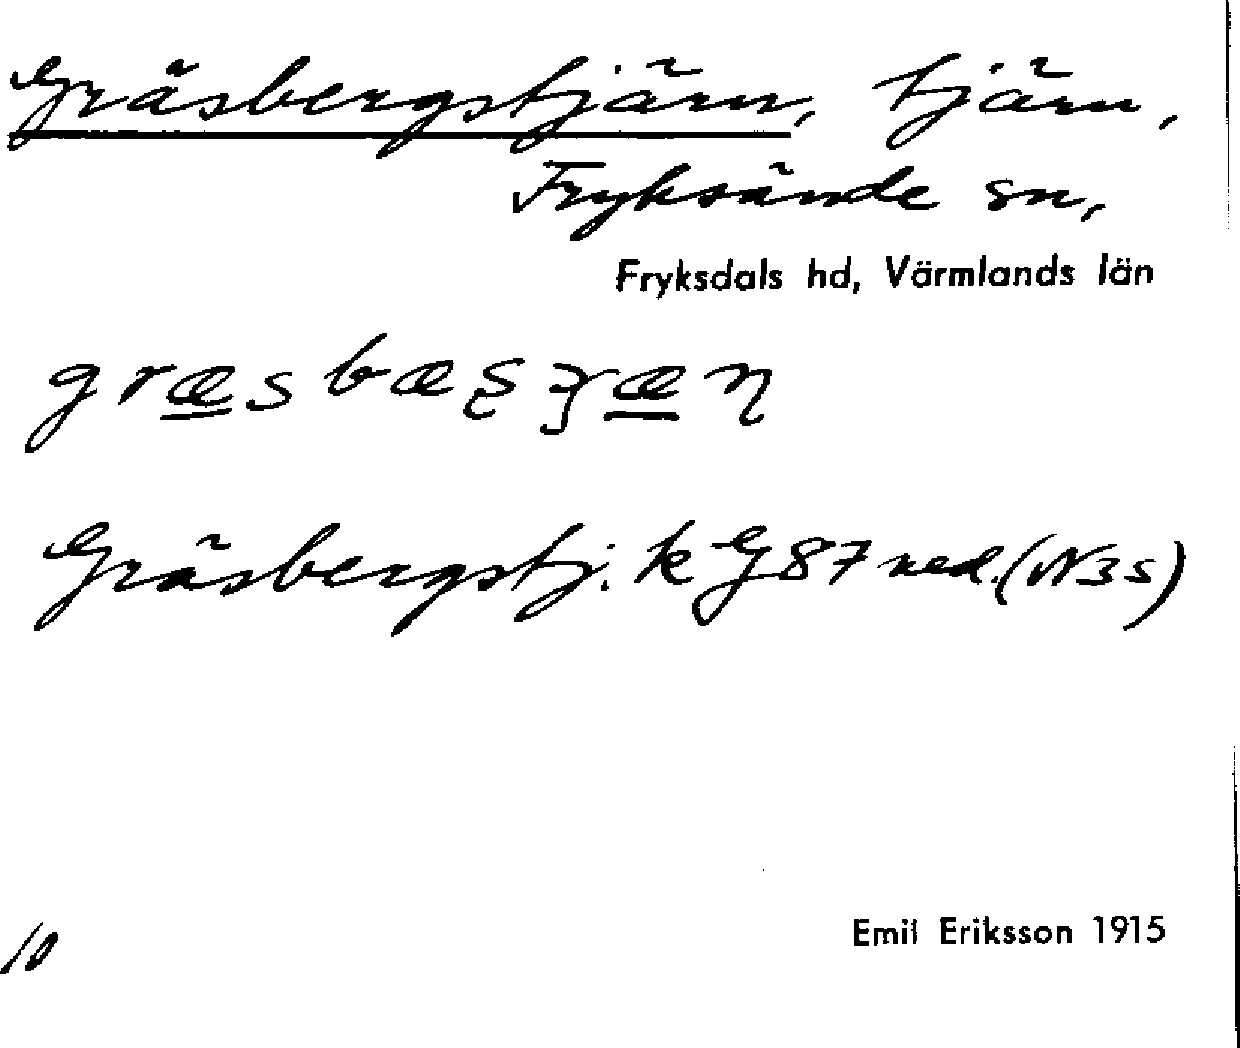 Gräsbergstjärn, tjärn,
Fryksände sn,
Fryksdals hd, Värmlands län
Gräsbergstj. k G 87 ned. (N 35)
10
Emil Eriksson 1915